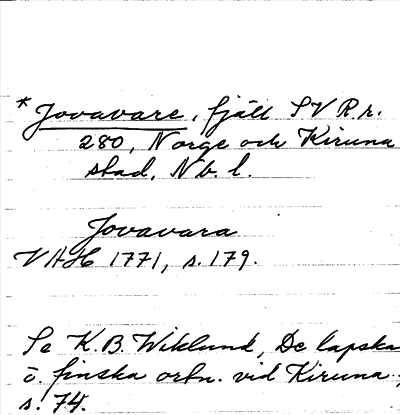 * Jovavare, fjäll SV R.r.
280, Norge och Kiruna
stad, Nb. l.
Jovavara
VAH 1771, s. 179.
Se K. B. Wiklund, De lapska
o. finska ortn. vid Kiruna,
s. 74.